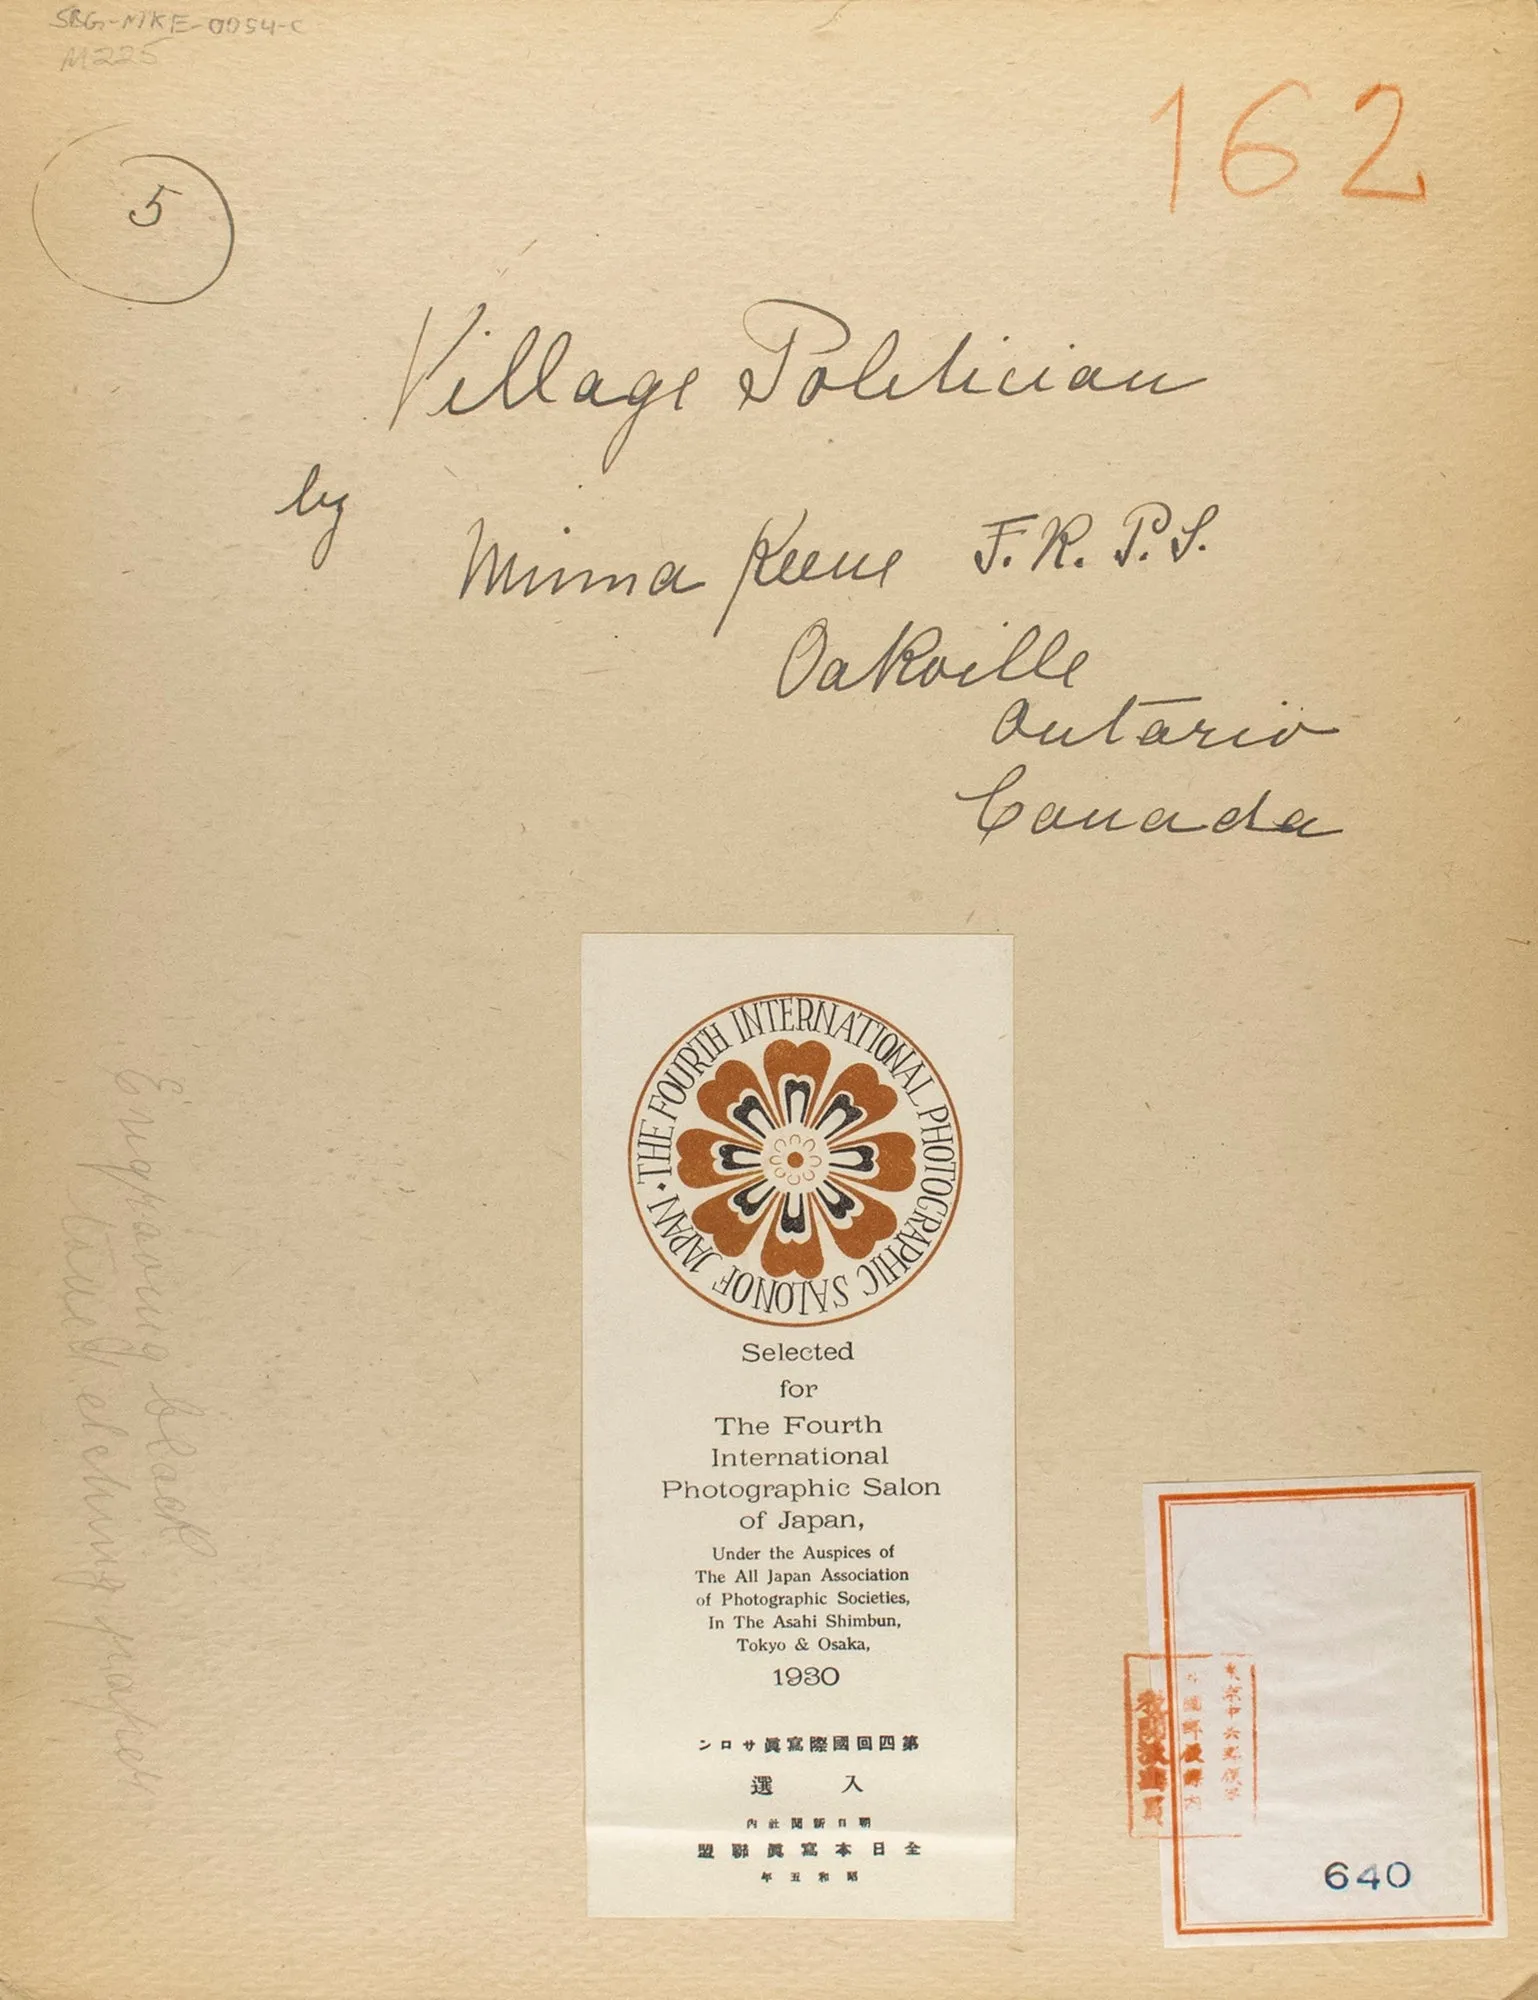 SBG-MKE-0054-C
M225
162
5
Village Politician
by
Minna Keene F.R.P.S.
Oakville
Ontario
Canada
THE FOURTH INTERNATIONAL PHOTOGRAPHIC SALON OF JAPAN
Selected
for
The Fourth
International
Photographic Salon
of Japan,
Under the Auspices of
The All Japan Association
of Photographic Societies,
In The Asahi Shimbun,
Tokyo & Osaka,
1930
ンロサ眞寫際國回四第
選入
内社聞新日朝
盟聯眞寫本日全
年五和昭
Engraving black
tined etching paper
640